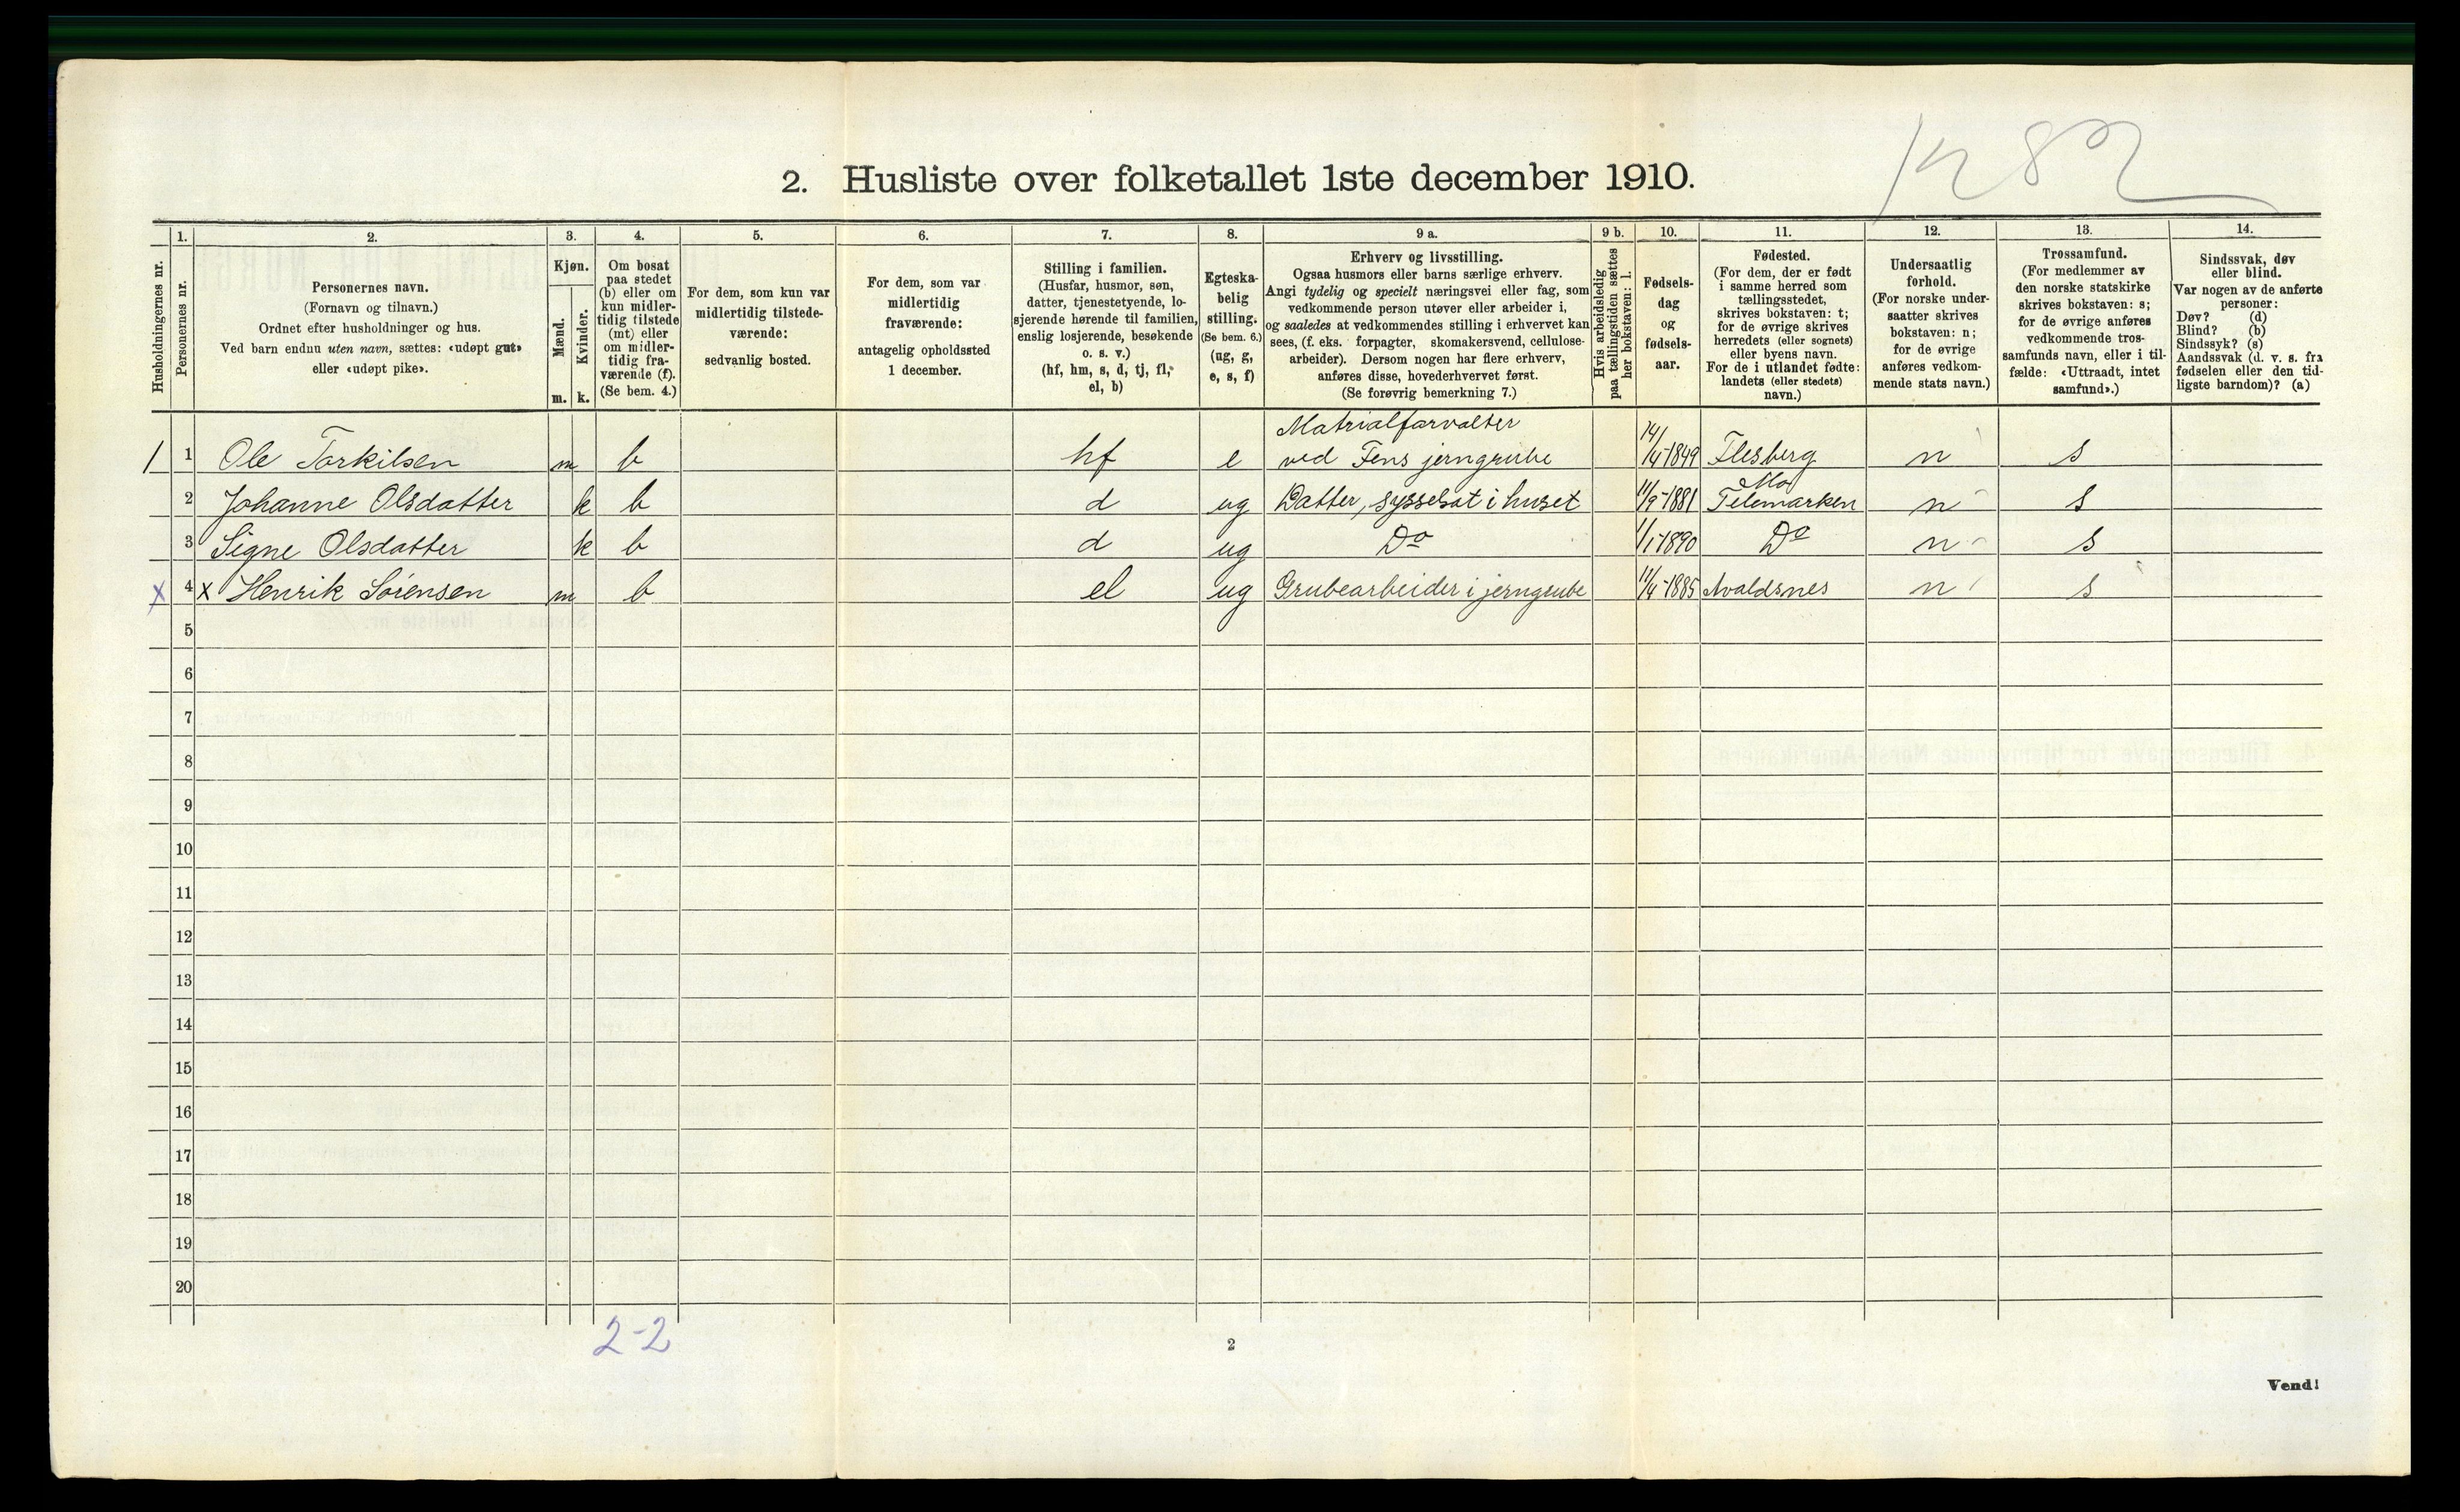 1282
2. Husliste over folketallet 1ste december 1910.
Husholdningernes nr.
1.
Personernes nr.
2.
Personernes navn.
(Fornavn og tilnavn.)
Ordnet efter husholdninger og hus.
Ved barn endnu uten navn, sættes: «udøpt gut»
eller «udøpt pike».
3.
Kjøn.
Mænd.
Kvinder.
m. k.
4.
Om bosat
paa stedet
(b) eller om
kun midler-
tidig tilstede
(mt) eller
om midler-
tidig fra-
værende (f).
(Se bem. 4.)
5.
For dem, som kun var
midlertidig tilstede-
værende:
sedvanlig bosted.
6.
For dem, som var
midlertidig
fraværende:
antagelig opholdssted
1 december.
7.
Stilling i familien.
(Husfar, husmor, søn,
datter, tjenestetyende, lo-
sjerende hørende til familien,
enslig losjerende, besøkende
o. s. v.)
(hf, hm, s, d, tj, fl,
el, b)
8.
Egteska-
belig
stilling.
(Se bem. 6.)
(ug, g,
e, s, f)
9 a.
Erhverv og livsstilling.
Ogsaa husmors eller barns særlige erhverv.
Angi tydelig og specielt næringsvei eller fag, som
vedkommende person utøver eller arbeider i,
og saaledes at vedkommendes stilling i erhvervet kan
sees, (f. eks. forpagter, skomakersvend, cellulose-
arbeider). Dersom nogen har flere erhverv,
anføres disse, hovederhvervet først.
(Se forøvrig bemerkning 7.)
9 b.
Hvis arbeidsledig
paa tællingstiden sættes
her bokstaven: l.
10.
Fødsels-
dag
og
fødsels-
aar.
11.
Fødested.
(For dem, der er født
i samme herred som
tællingsstedet,
skrives bokstaven: t;
for de øvrige skrives
herredets (eller sognets)
eller byens navn.
For de i utlandet fødte:
landets (eller stedets)
navn.)
12.
Undersaatlig
forhold.
(For norske under-
saatter skrives
bokstaven: n;
for de øvrige
anføres vedkom-
mende stats navn.)
13.
Trossamfund.
(For medlemmer av
den norske statskirke
skrives bokstaven: s;
for de øvrige anføres
vedkommende tros-
samfunds navn, eller i til-
fælde: «Uttraadt, intet
samfund».)
14.
Sindssvak, døv
eller blind.
Var nogen av de anførte
personer:
Døv? (d)
Blind? (b)
Sindssyk? (s)
Aandssvak (d. v. s. fra
fødselen eller den tid-
ligste barndom)? (a)
Matrialforvalter
1 1 Ole Torkilsen m b hf e ved Fens jerngrube 14/4-1849 Flesberg n s
Mo
2 Johanne Olsdatter k b d ug Datter, sysselsat i huset 11/9-1881 Telemarken n s
3 Signe Olsdatter k b d ug Do 1/1-1890 Do n s
x 4 x Henrik Sørensen m b el ug Grubearbeider i jerngrube 11/4-1885 Avaldsnes n s
5
6
7
8
9
10
11
12
13
14
15
16
17
18
19
20
2-2
2
Vend!